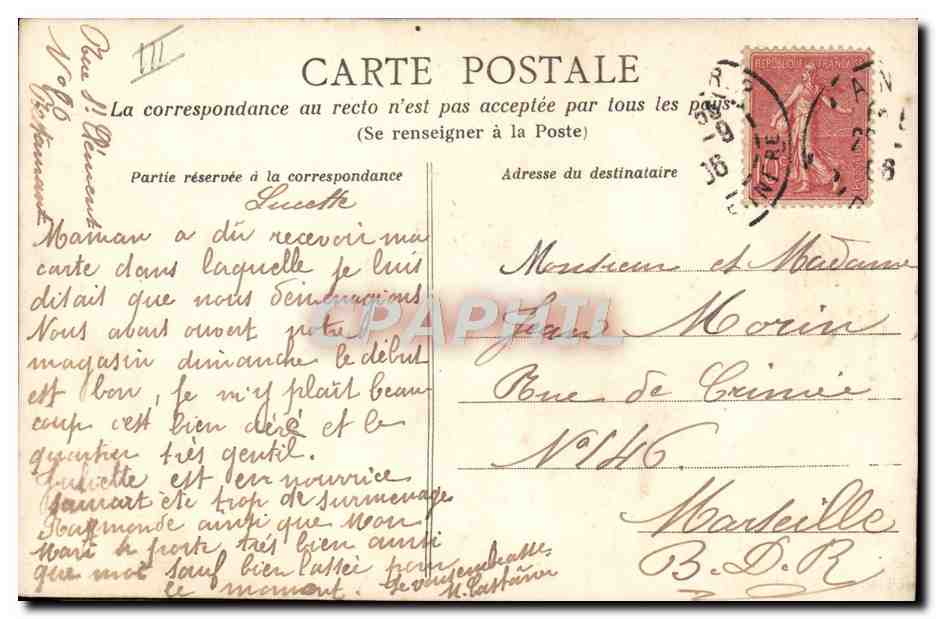 Rue St Clément
N° 96
III
CARTE POSTALE
La correspondance au recto n'est pas acceptée par tous les pays
(Se renseigner à la Poste)
REPUBLIQUE FRANÇAISE
Partie réservée à la correspondance
Adresse du destinataire
Lucette
Maman a dû recevoir ma
carte dans laquelle je luis
disait que nous déménagions
Nous avons ouvert notre
magasin dimanche le début
est bon, je m'y plaît beau-
coup c'est bien aéré et le
quartier très gentil.
Juliette est en nourrice
ète trop de surmenage
Raymonde ainsi que Mon
Mari se porte très bien ainsi
que moi sauf bien lassée pour
le moment. Je vous embrasse
M.
Monsieur et Madame
Jean Morin
Rue de Crimée
N° 146.
Marseille
B.D.R
CPAPHIL